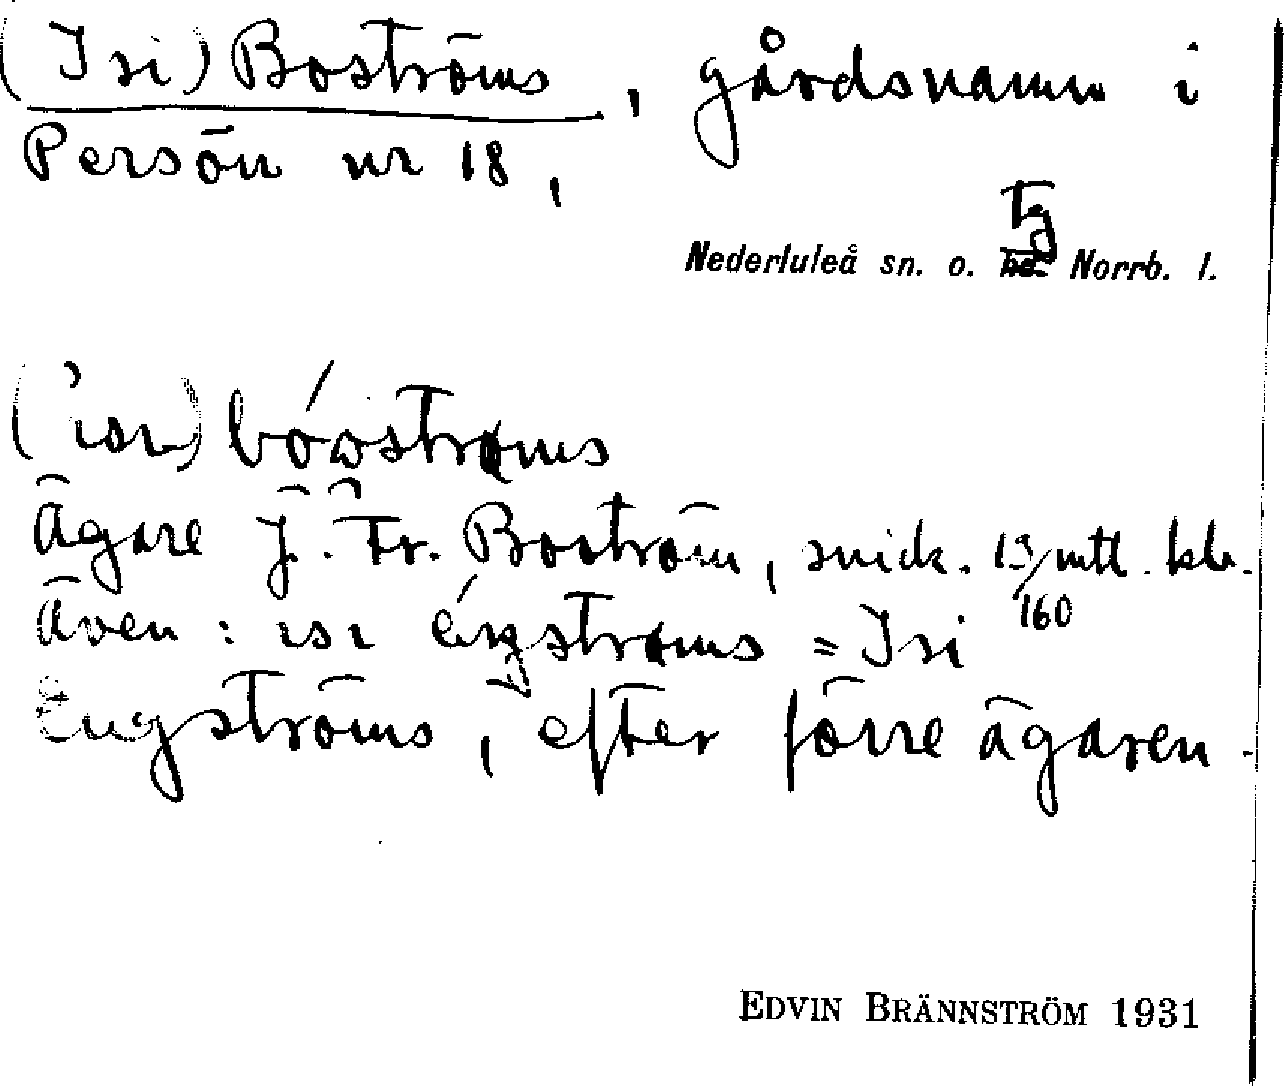 (Isi) Boströms, gårdsnamn i
Persön nr 18,
Tg
Nederluleå sn. o. hd. Norrb. l.
(isɪ) bóωströms
Ägare J. Fr. Boström, snick. 13/160 mtl. kr.
även: ɪsɪ éŋströms = Isi
Engströms, efter förre ägaren.
EDVIN BRÄNNSTRÖM 1931